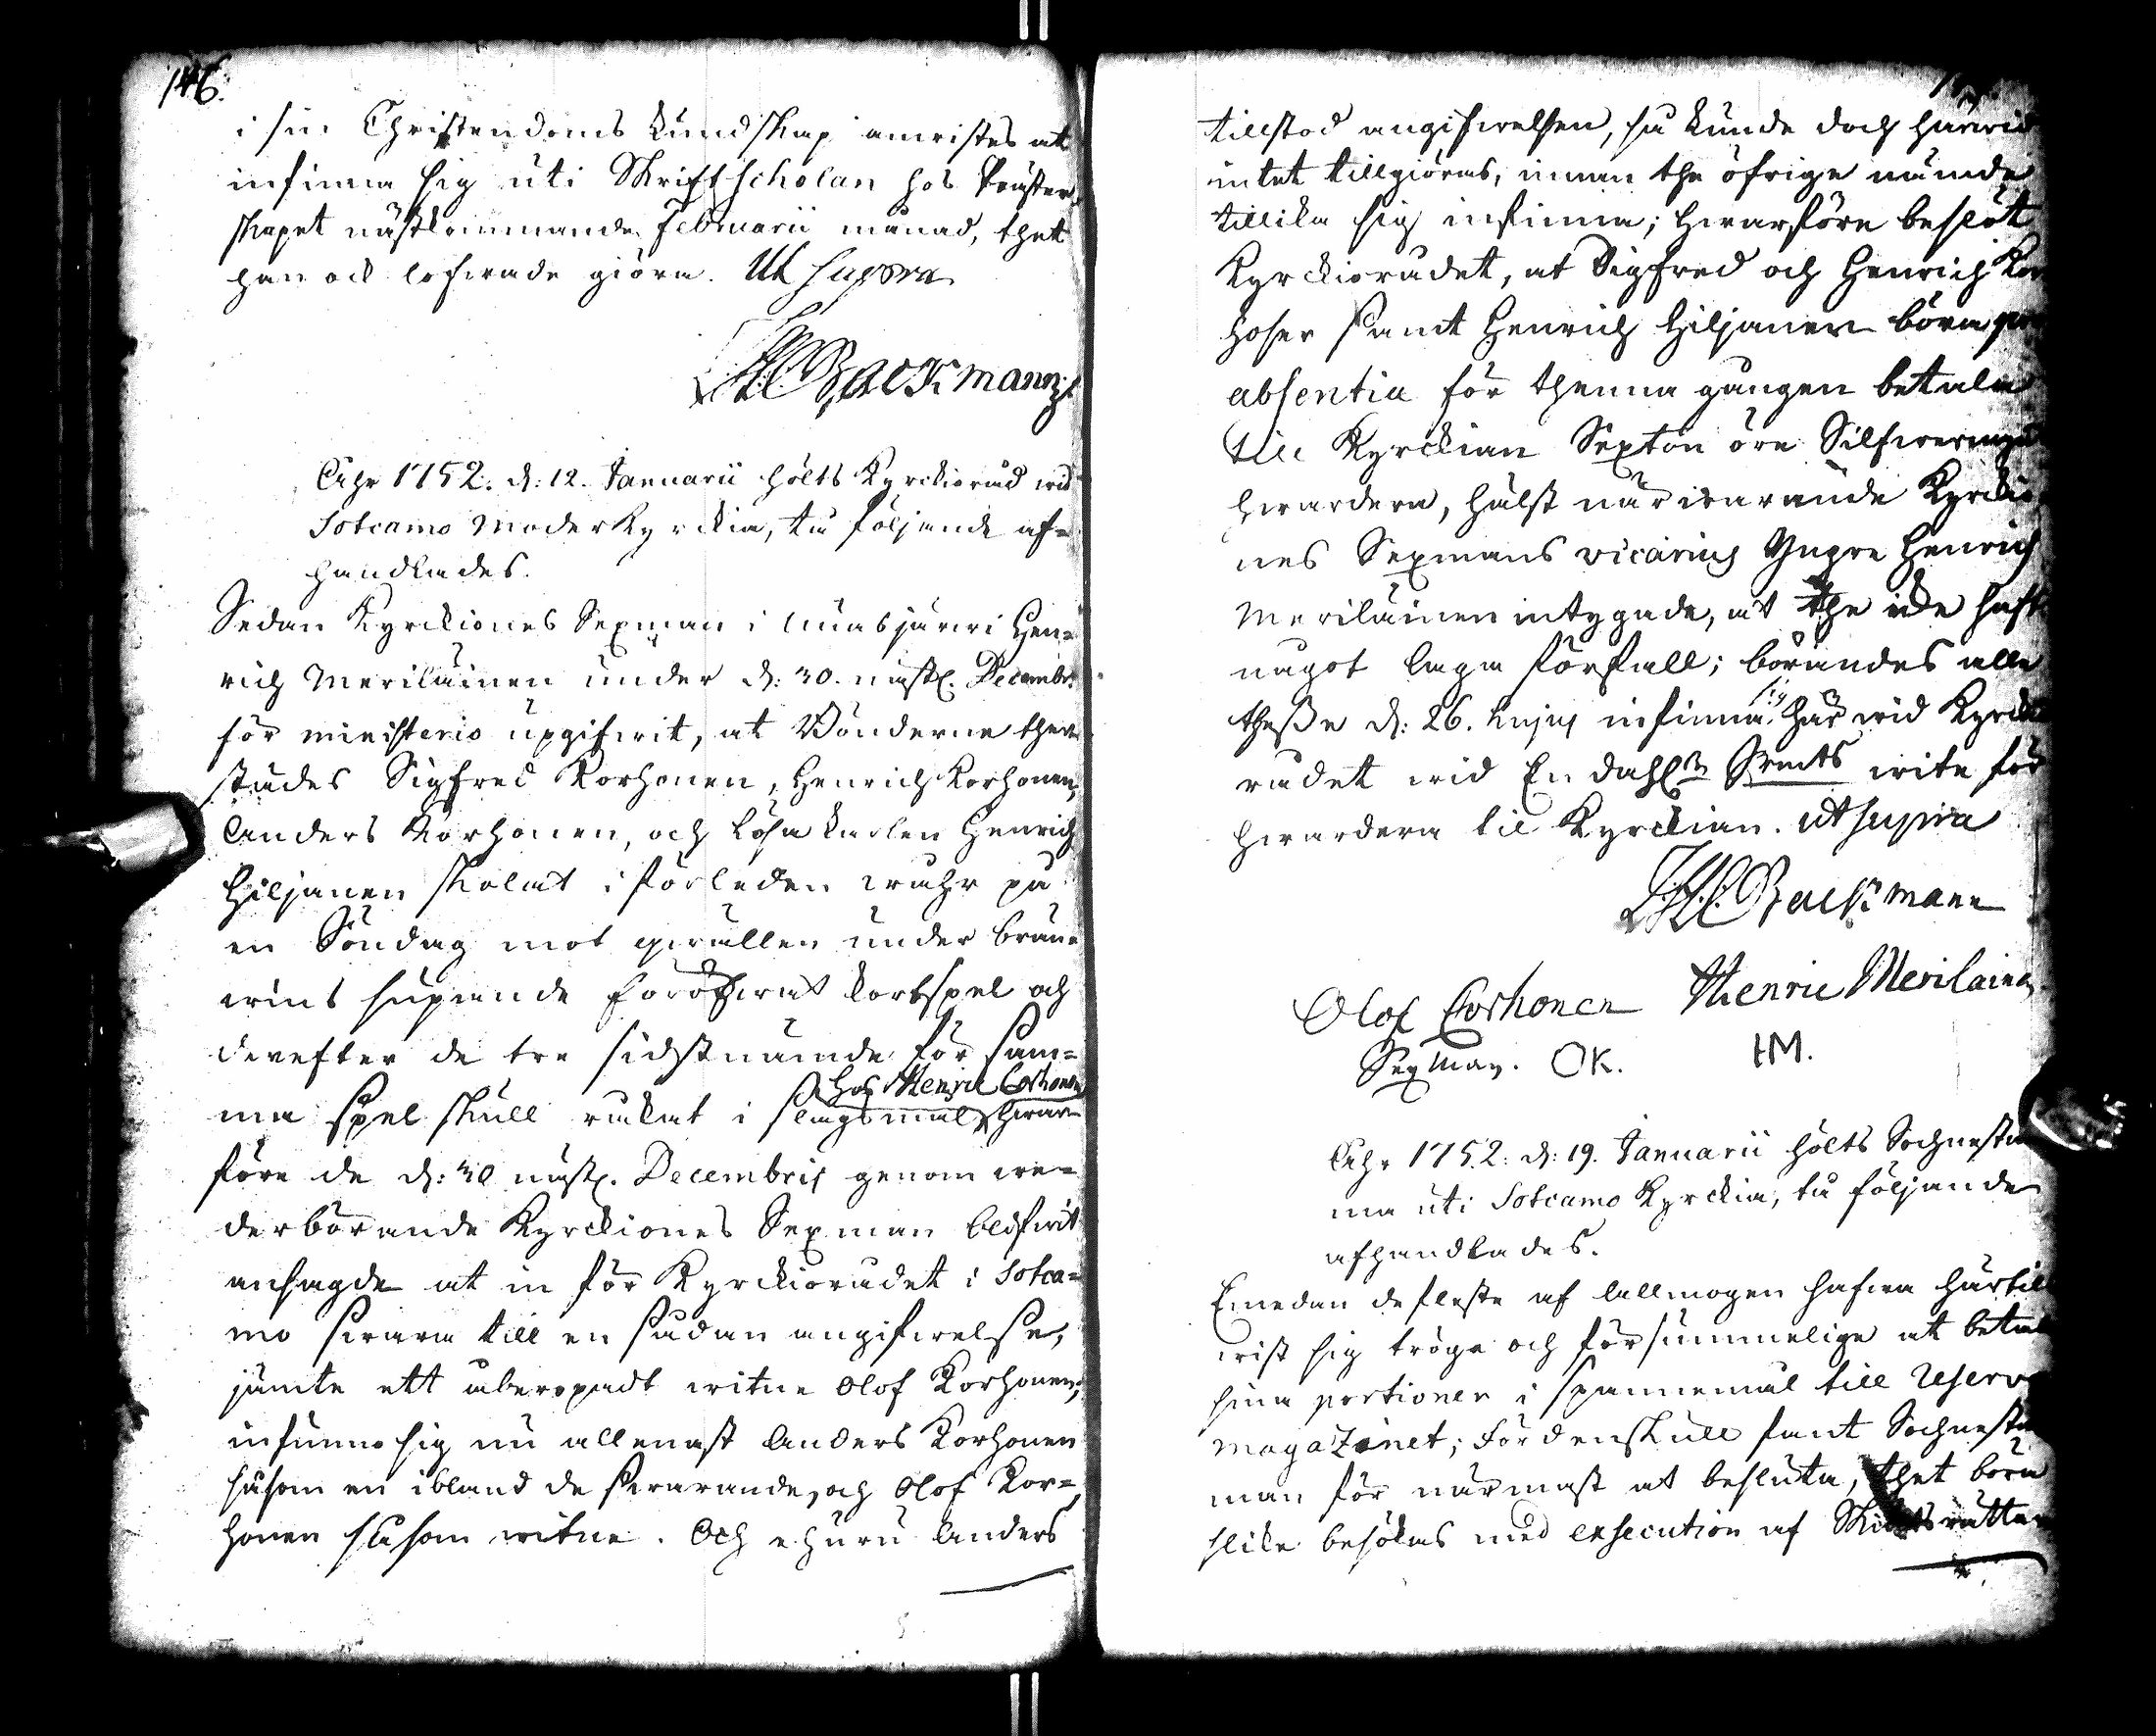 146.
i sin Christendoms kundskap anvistes at
infinna sig uti Skriftscholan hos Präster-
skapet nästkommande Februarii månad, thet
han ock lofwade giöra. Ut supra
Backmann
Åhr 1752. d: 12. Januarii hölts Kyrckioråd wid
Sotcamo Moderkyrckia, då följande af-
handlades.
Sedan Kyrckiones Sexman i Nuasjärwi Hen-
rich Meriläinen under d: 30. nästl. Decembr.
för ministerio upgifwit, at Bönderne ther-
städes Sigfred Korhonen, Henrich Korhonen,
Anders Korhonen, och Lösa karlen Henrich
Hiljanen skolat i förleden wåhr på
en Söndag mot qwällen under brän-
wins supande föröfwat kortspel och
derefter de tre sidstnämde för sam-
hos Henric Corhonen
ma spel skull råkat i slagsmål, hwar-
före de d: 30 nästl. Decembris genom we-
derbörande Kyrckiones Sexman blifwit
ansagde at in för Kyrckiorådet i Sotca-
mo swara till en sådan angifwelse,
jämte ett åberopadt witne Olof Korhonen;
infunno sig nu allenast Anders Korhonen
såsom en ibland de swarande, och Olof Kor-
honen såsom witne. Och ehuru Anders
tillstod angifwelsen, så kunde doch härwid
intet tillgiöras, innan the öfrige nämde
tillika sig infinna; hwarföre beslöt
Kyrckiorådet, at Sigfred och Henrich Kor
hoser samt Henrich Hiljanen böra pro
absentia för thenna gången betala
till Kyrckian Sexton öre Silfwermynt
hwardera, hälst närwarande Kyrckio
nes Sexmans vicarius Yngre Henrich
Meriläinen intygade, at the icke haft
något laga förfall; börandes alla
sig
theße d: 26. hujus infinna här wid Kyrckio
rådet wid En dahl. Smts wite för
hwardera till Kyrckian. Ut supra
Backmann
Olof Corhonen Henric Merilainen
Sexman. OK. HM.
Åhr 1752. d: 19. Januarii hölts Sochnestä
ma uti Sotcamo Kyrckia, då följande
afhandlades.
Emedan de fleste af allmogen hafwa härtill
wist sig tröga och försummelige at betala
sina portioner i spannemål till Reserv
magazinet; Fördenskull fant Sochnestä
man för närmast at besluta, thet böra
slike besökas med exsecution af